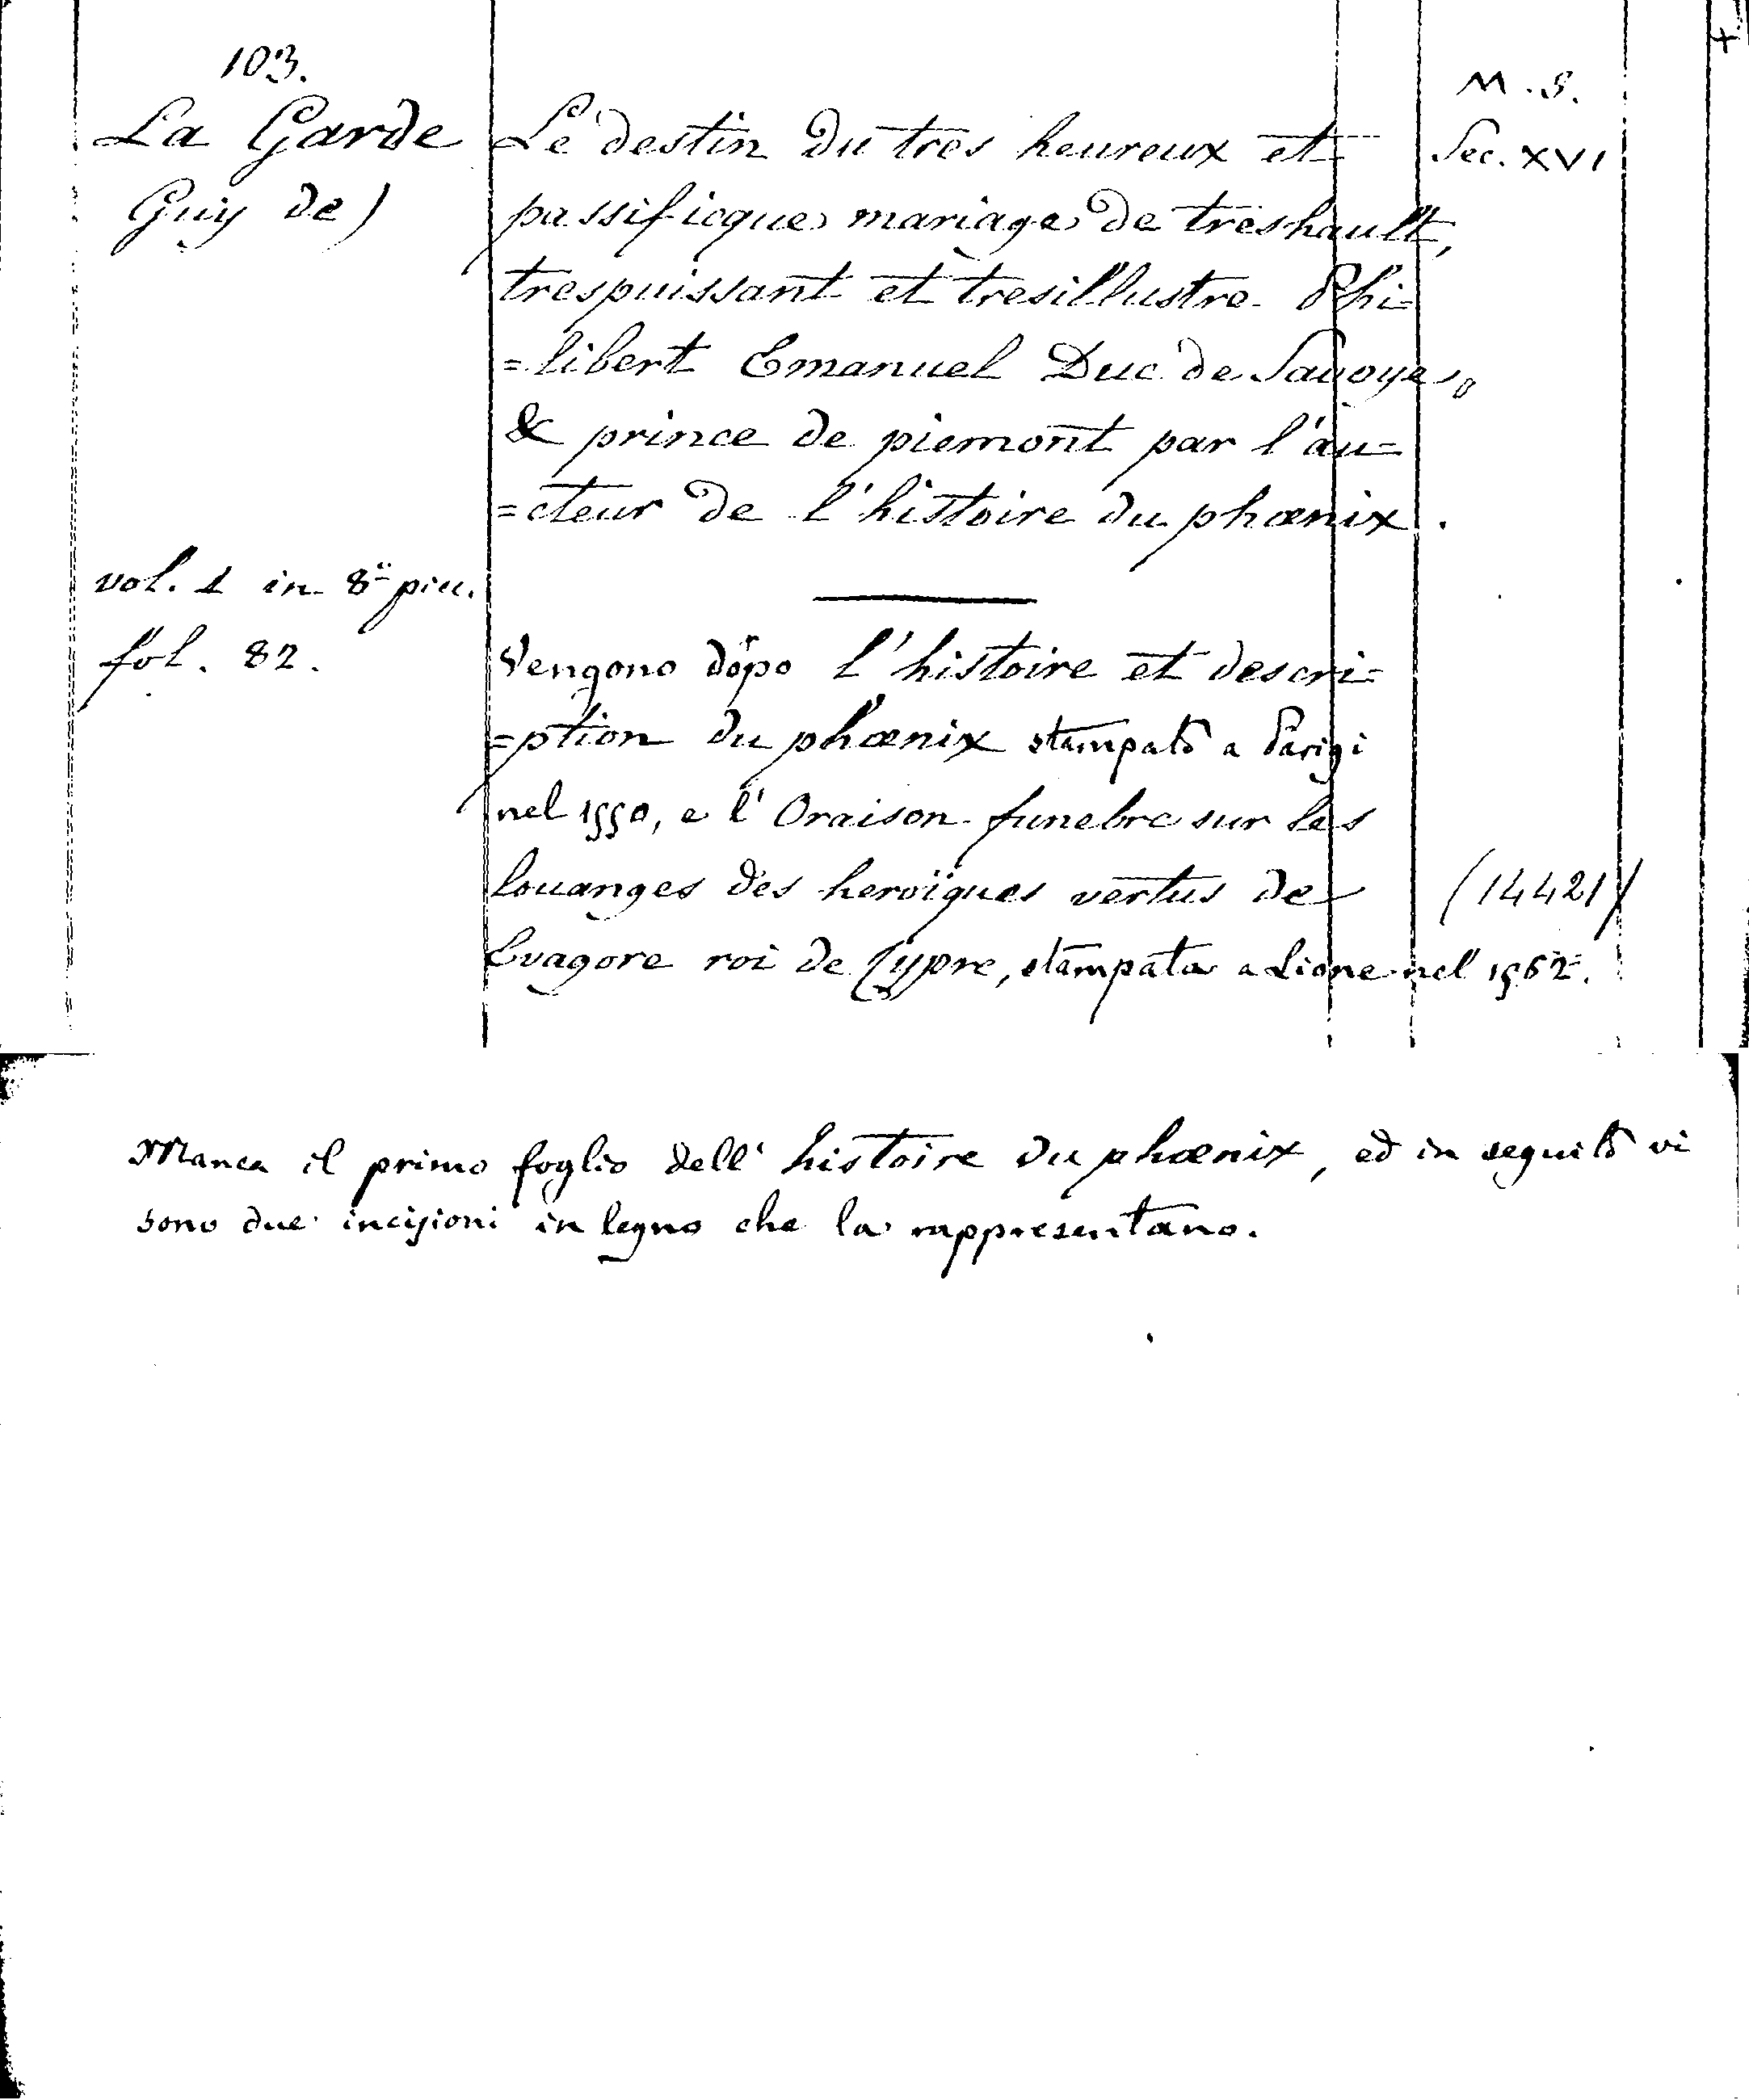 103.
La Garde
Guy de)
Le destin du tres heureux et
passificque mariage de treshault,
trespuissant et tresillustre Phi=
=libert Emanuel Duc de Savoye,
& prince de piemont par l'au=
=cteur de l'histoire du phœnix.
M.S.
Sec. XVI
vol. 1 in 8º picc.
fol. 82.
Vengono dopo l'histoire et descri=
=ption du phœnix stampato a Parigi
nel 1550, e l'Oraison funebre sur les
louanges des heroïques vertus de
Evagore roi de Cypre, stampata a Lione nel 1562.
(14421)
Manca il primo foglio dell'histoire du phœnix, ed in seguito vi
sono due incisioni in legno che la rappresentano.